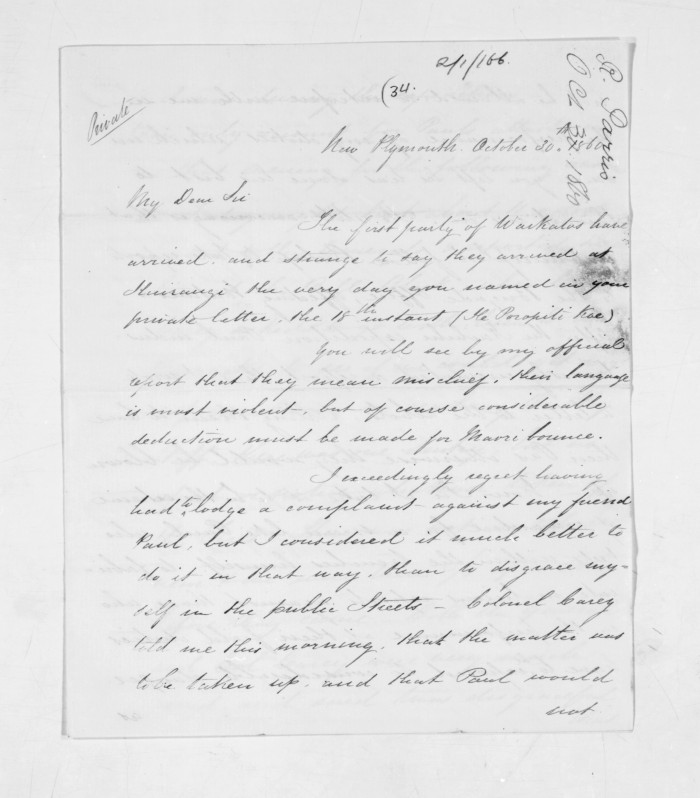 2/1/166.
(34.
Private
R. Parris
Oct 30th 1860
New Plymouth. October 30th 1860
My Dear Sir
The first party of Waikatos have
arrived. and strange to say they arrived at
the very day you named in your
private letter. the 18th instant (He Poropiti Koe)
You will see by my official
report that they mean mischief. their language
is most violent. but of course considerable
deduction must be made for Maori bounce.
I exceedingly regret having
had to lodge a complaint against my friend
Paul, but I considered it much better to
do it in that way. than to disgrace my-
self in the public Streets – Colonel Carey
told me this morning. that the matter was
to be taken up. and that Paul would
not